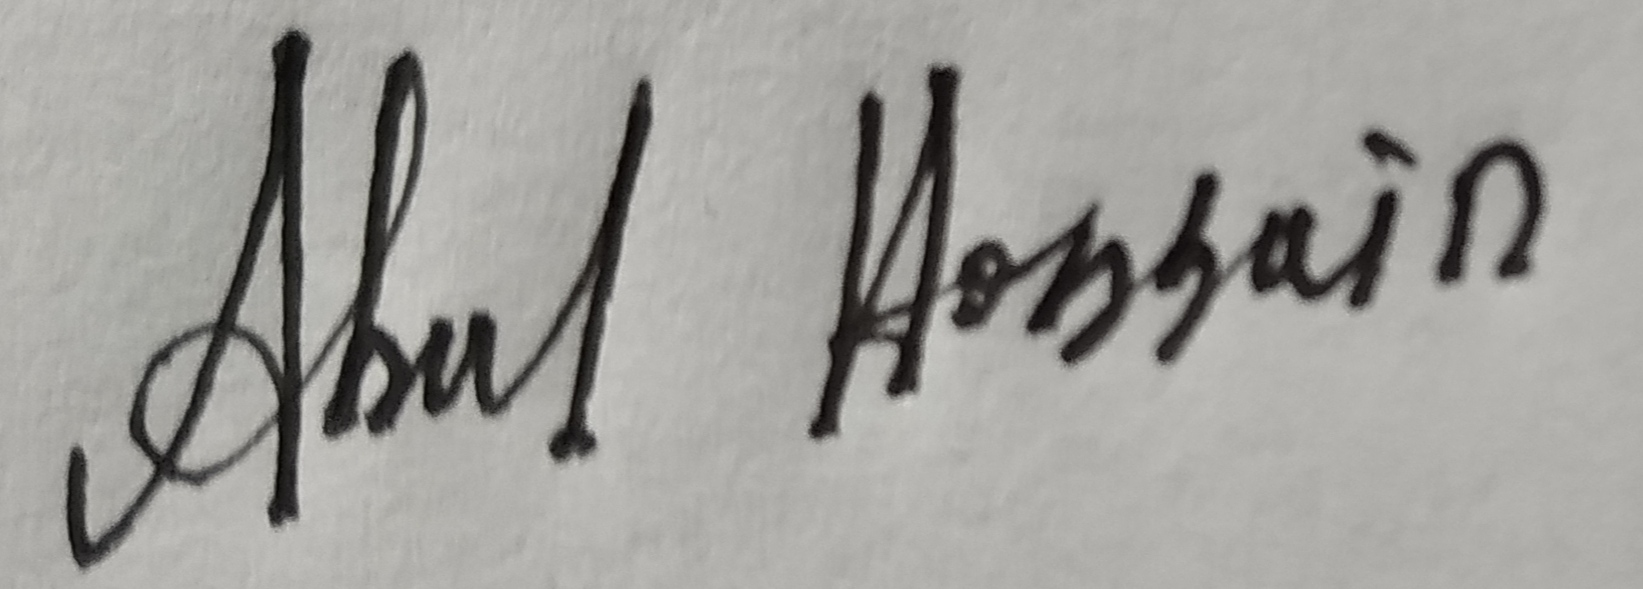 Abul Hossain